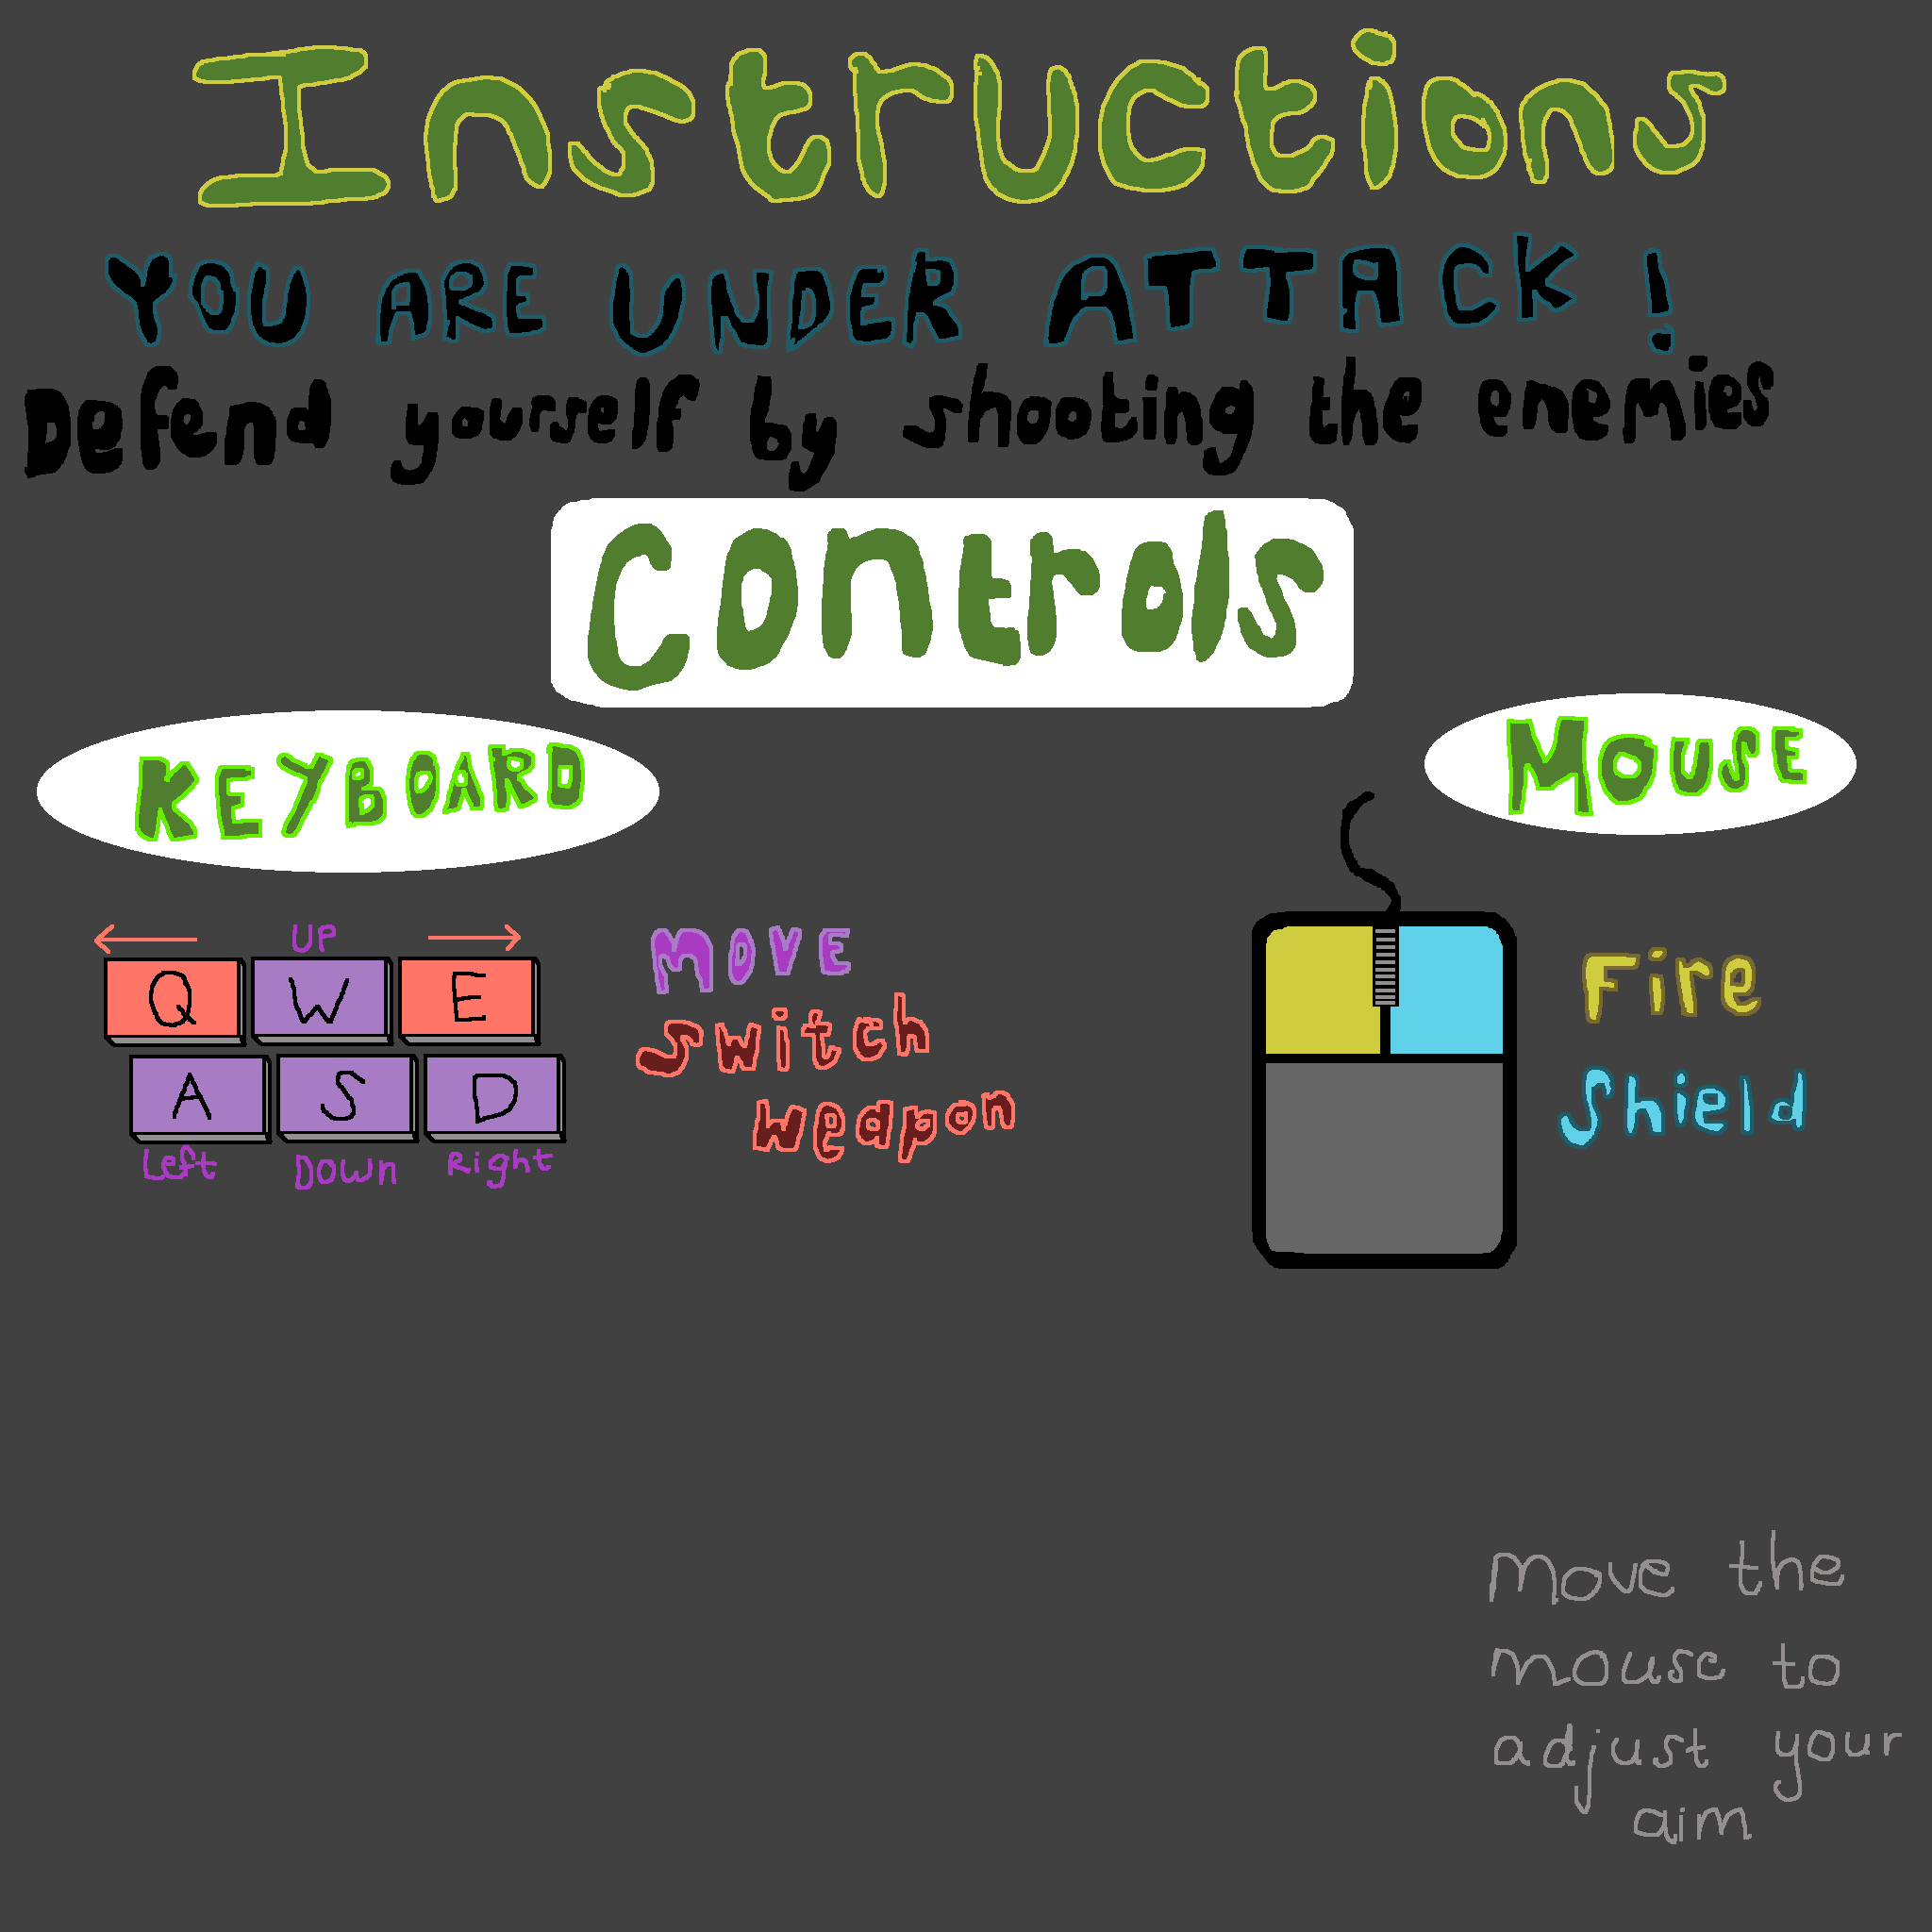 Instructions
YOU ARE UNDER ATTACK !
Defend yourself by shooting the enemies
Controls
KEYBOARD
MOUSE
UP
Q W E
A S D
Left Down Right
MOVE
Switch
weapon
Fire
Shield
Move the
mouse to
adjust your
aim